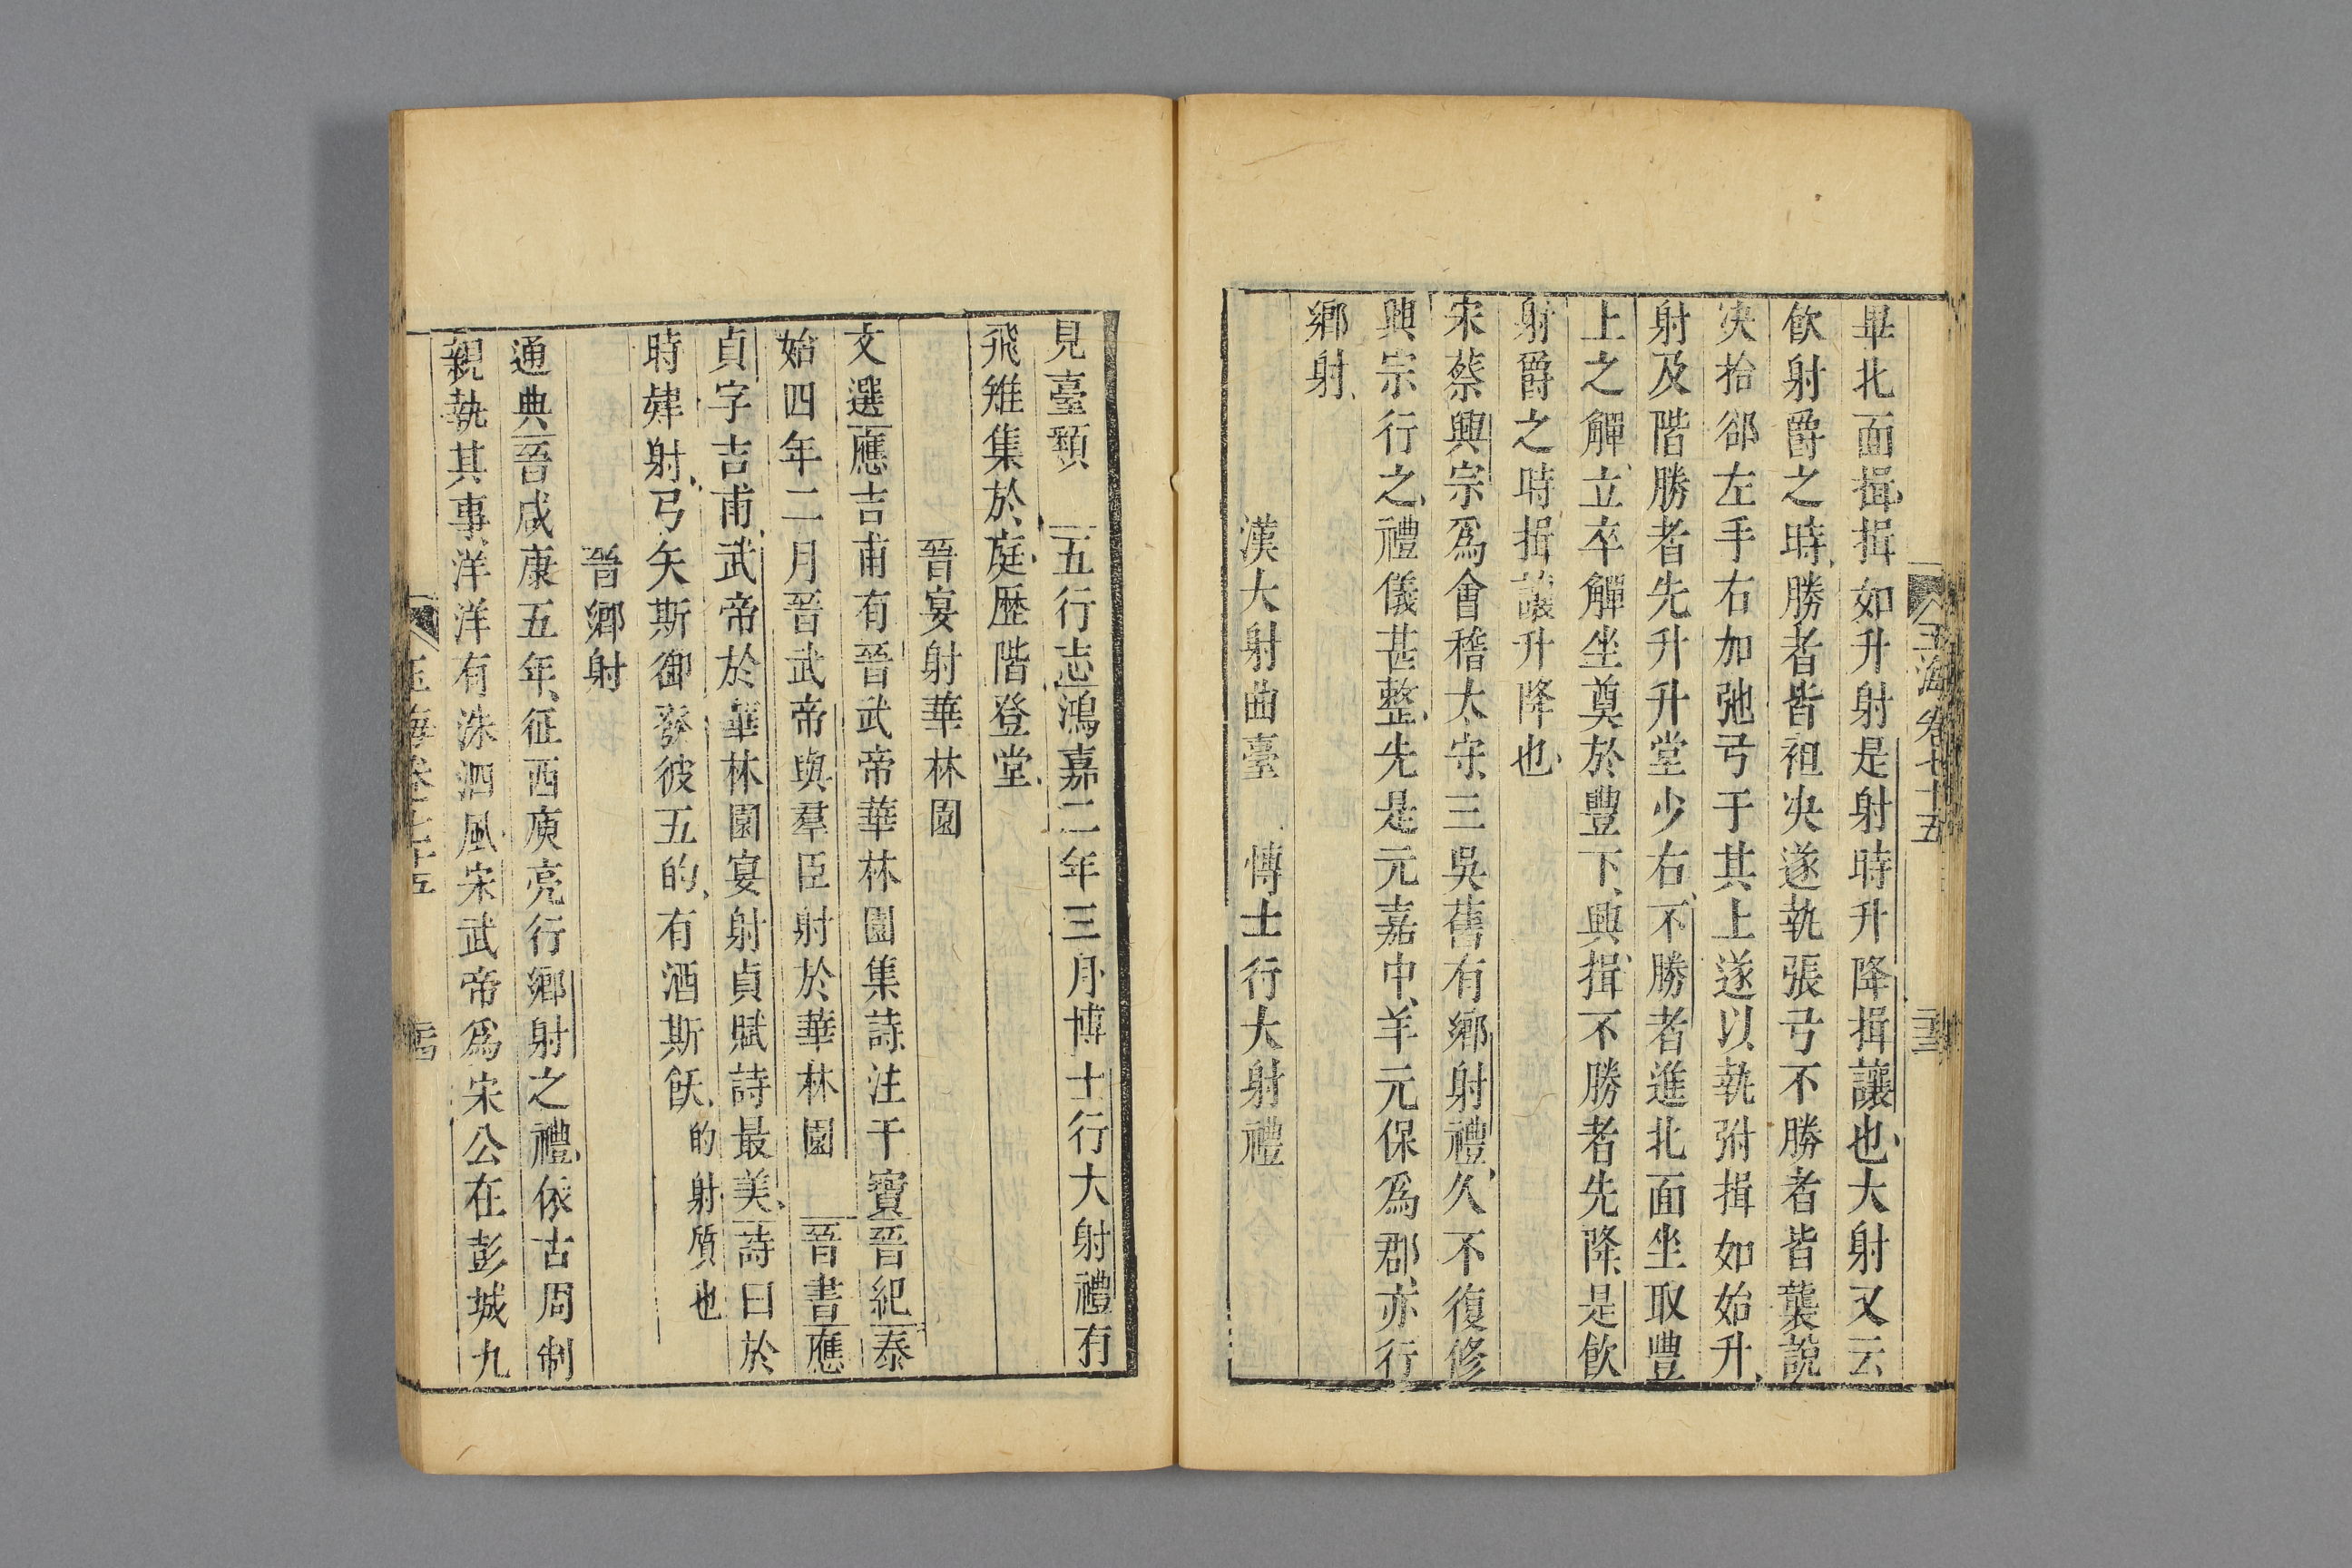 玉海卷七十五
畢北面揖揖如升射是射時升降揖讓也大射又云
飲射爵之時勝者皆袒决遂執張弓不勝者皆襲說
决拾郤左手右加弛弓于其上遂以執弣揖如始升
射及階勝者先升升堂少右不勝者進北面坐取豐
上之觶立卒觶坐奠於豐下興揖不勝者先降是飲
射爵之時揖讓升降也
宋蔡興宗爲會稽太守三吳舊有鄉射禮久不復修
興宗行之禮儀甚整先是元嘉中羊元保爲郡亦行
鄉射
漢大射曲臺 愽士行大射禮
見臺類 五行志鴻嘉二年三月博士行大射禮有
飛雉集於庭歷階登堂
晉宴射華林園
文選應吉甫有晉武帝華林園集詩注干寶晉紀泰
始四年二月晉武帝與羣臣射於華林園 晉書應
貞字吉甫武帝於華林園宴射貞賦詩最美詩曰於
時肄射弓矢斯御發彼五的有酒斯飫的射質也
晉鄉射
通典晉咸康五年征西庾亮行鄉射之禮依古周制
親執其事洋洋有洙泗風宋武帝爲宋公在彭城九
玉海卷七十五